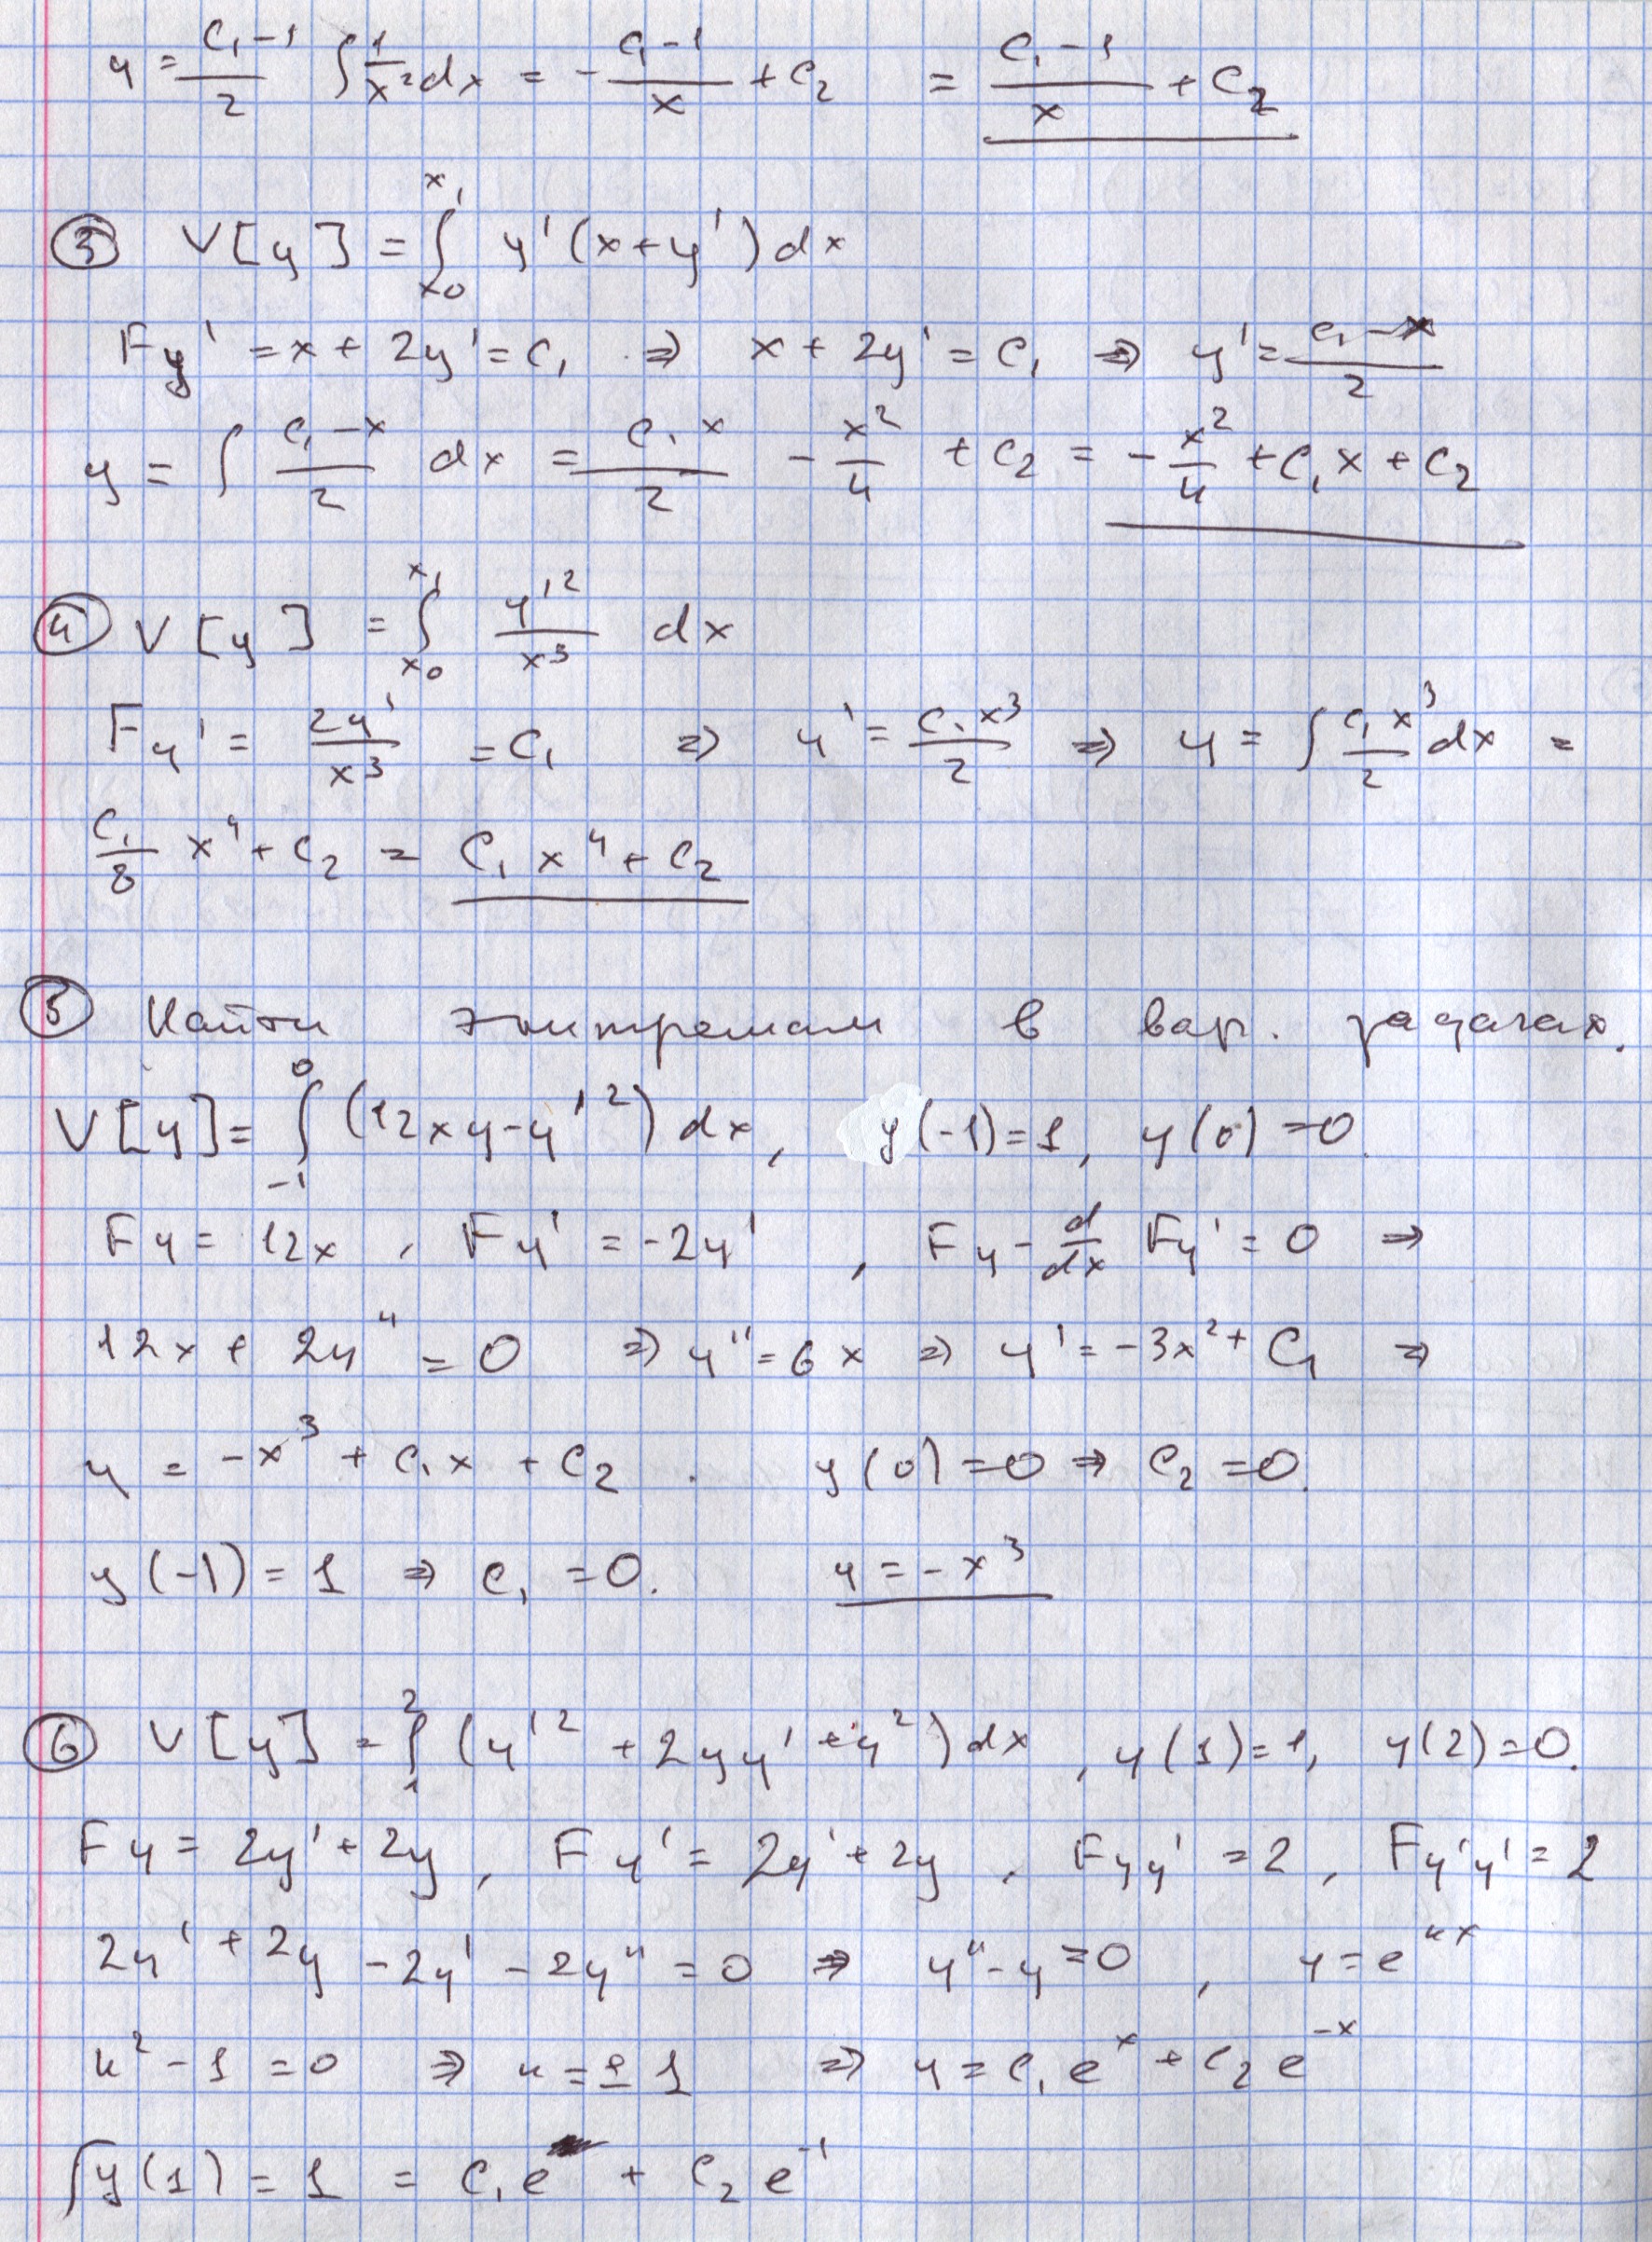 y = (C₁ - 1)/2 ∫ 1/x² dx = - (C₁ - 1)/x + C₂ = (C₁ - 1)/x + C₂
③ V[y] = ∫_{x₀}^{x₁} y'(x + y') dx
Fy' = x + 2y' = C₁ ⇒ x + 2y' = C₁ ⇒ y' = (C₁ - x)/2
y = ∫ (C₁ - x)/2 dx = C₁x/2 - x²/4 + C₂ = - x²/4 + C₁x + C₂
④ V[y] = ∫_{x₀}^{x₁} y'²/x³ dx
Fy' = 2y'/x³ = C₁ ⇒ y' = C₁x³/2 ⇒ y = ∫ C₁x³/2 dx =
C₁/8 x⁴ + C₂ = C₁x⁴ + C₂
⑤ Найти экстремали в вар. задачах.
V[y] = ∫_{-1}^{0} (12xy - y'²) dx, y(-1) = 1, y(0) = 0.
Fy = 12x, Fy' = -2y', Fy - d/dx Fy' = 0 ⇒
12x + 2y'' = 0 ⇒ y'' = 6x ⇒ y' = -3x² + C₁ ⇒
y = -x³ + C₁x + C₂. y(0) = 0 ⇒ C₂ = 0.
y(-1) = 1 ⇒ C₁ = 0. y = -x³
⑥ V[y] = ∫_{1}^{2} (y'² + 2yy' + y²) dx, y(1) = 1, y(2) = 0.
Fy = 2y' + 2y, Fy' = 2y' + 2y, Fyy' = 2, Fy'y' = 2
2y' + 2y - 2y' - 2y'' = 0 ⇒ y'' - y = 0, y = e^{kx}
k² - 1 = 0 ⇒ k = ± 1 ⇒ y = C₁e^x + C₂e^{-x}
{ y(1) = 1 = C₁e + C₂e^{-1}